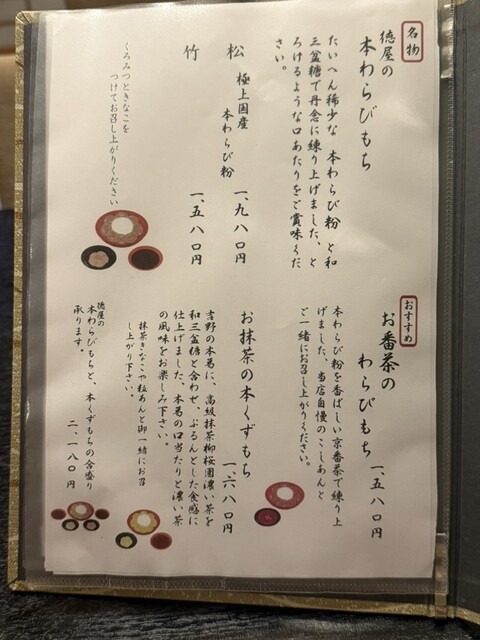 名物
徳屋の
本わらびもち
たいへん稀少な 本わらび粉 と和
三盆糖で丹念に練り上げました、と
ろけるような口あたりをご賞味くだ
さい。
松 極上国産
本わらび粉
一、九八〇円
竹 一、五八〇円
くろみつときなこを
つけてお召し上がりください
おすすめ
お番茶の
わらびもち
一、五八〇円
本わらび粉を香ばしい京番茶で練り上
げました、当店自慢のこしあんと
ご一緒にお召し上がりください。
お抹茶の本くずもち
一、六八〇円
吉野の本葛に、高級抹茶柳桜園濃い茶を
和三盆糖と合わせ、ぷるんとした食感に
仕上げました、本葛の口当たりと濃い茶
の風味をお楽しみ下さい。
抹茶きなこや粒あんと御一緒にお召
し上がり下さい。
徳屋の
本わらびもちと、本くずもちの合盛り
承ります。
二、一八〇円